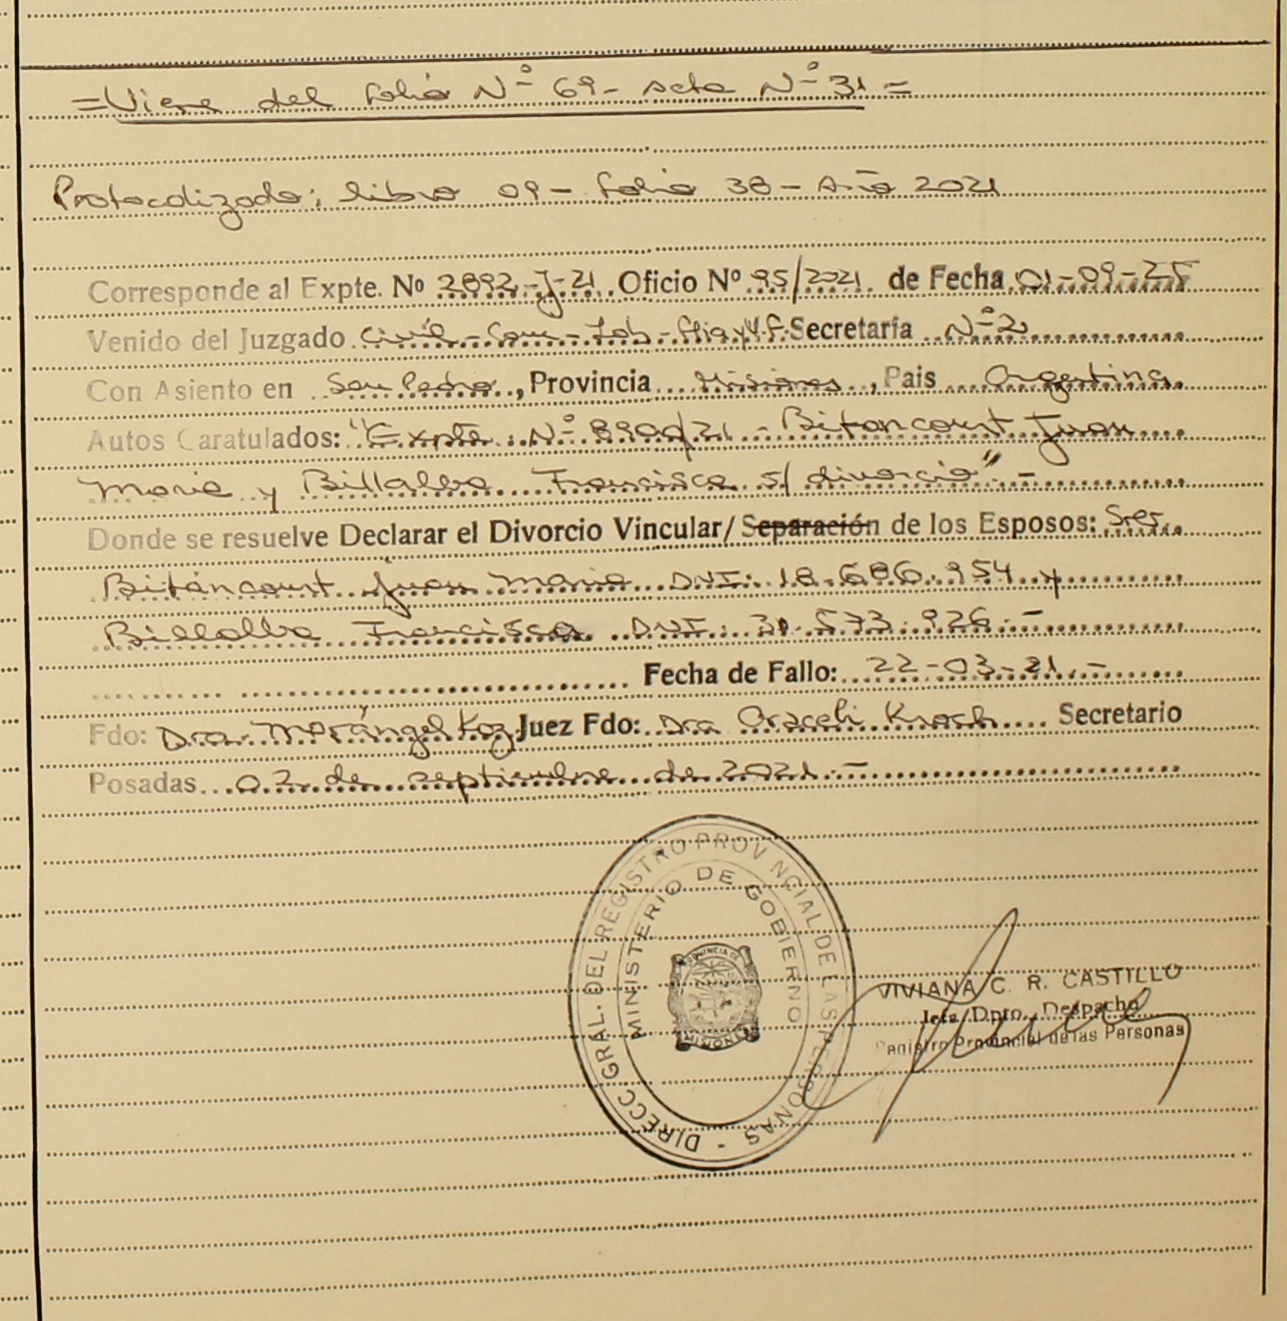 =Viene del folio Nº 69- acta Nº 31=
Protocolizado: libro 09- folio 38- Año 2021
Corresponde al Expte. Nº 2892-J-21 Oficio Nº 95/2021 de Fecha 01-09-
Venido del Juzgado Civil-Com-Lab-flia y V.F. Secretaría Nº2
Con Asiento en San Pedro, Provincia Misiones, Pais Argentina
Autos Caratulados: "Expte Nº /21 - Bitancourt Juan
Maria y Billalba Francisca s/ divorcio"-
Donde se resuelve Declarar el Divorcio Vincular/Separación de los Esposos: Sres.
Bitancourt Juan Maria DNI: 18.686.954 y
Billalba Francisca DNI: 31.573.926-
Fecha de Fallo: 22-03-21.-
Fdo: Dra. Juez Fdo: Dra Araceli Secretario
Posadas 02 de septiembre de 2021.-
DIRECC. GRAL. DEL REGISTRO PROVINCIAL DE LAS PERSONAS -
MINISTERIO DE GOBIERNO
PROVINCIA DE
MISIONES
VIVIANA C. R. CASTILLO
Jefa Dpto. Despacho
Registro Provincial de las Personas